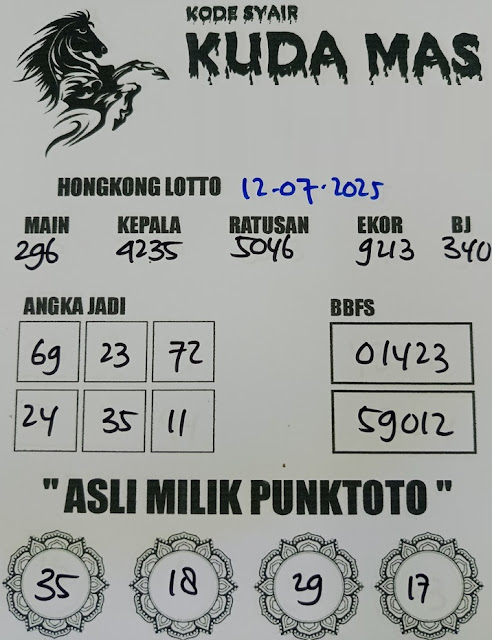 KODE SYAIR
KUDA MAS
HONGKONG LOTTO 12-07-2025
MAIN KEPALA RATUSAN EKOR BJ
296 4235 5046 9213 340
ANGKA JADI BBFS
69 23 72 01423
24 35 11 59012
"ASLI MILIK PUNKTOTO"
35 18 29 17